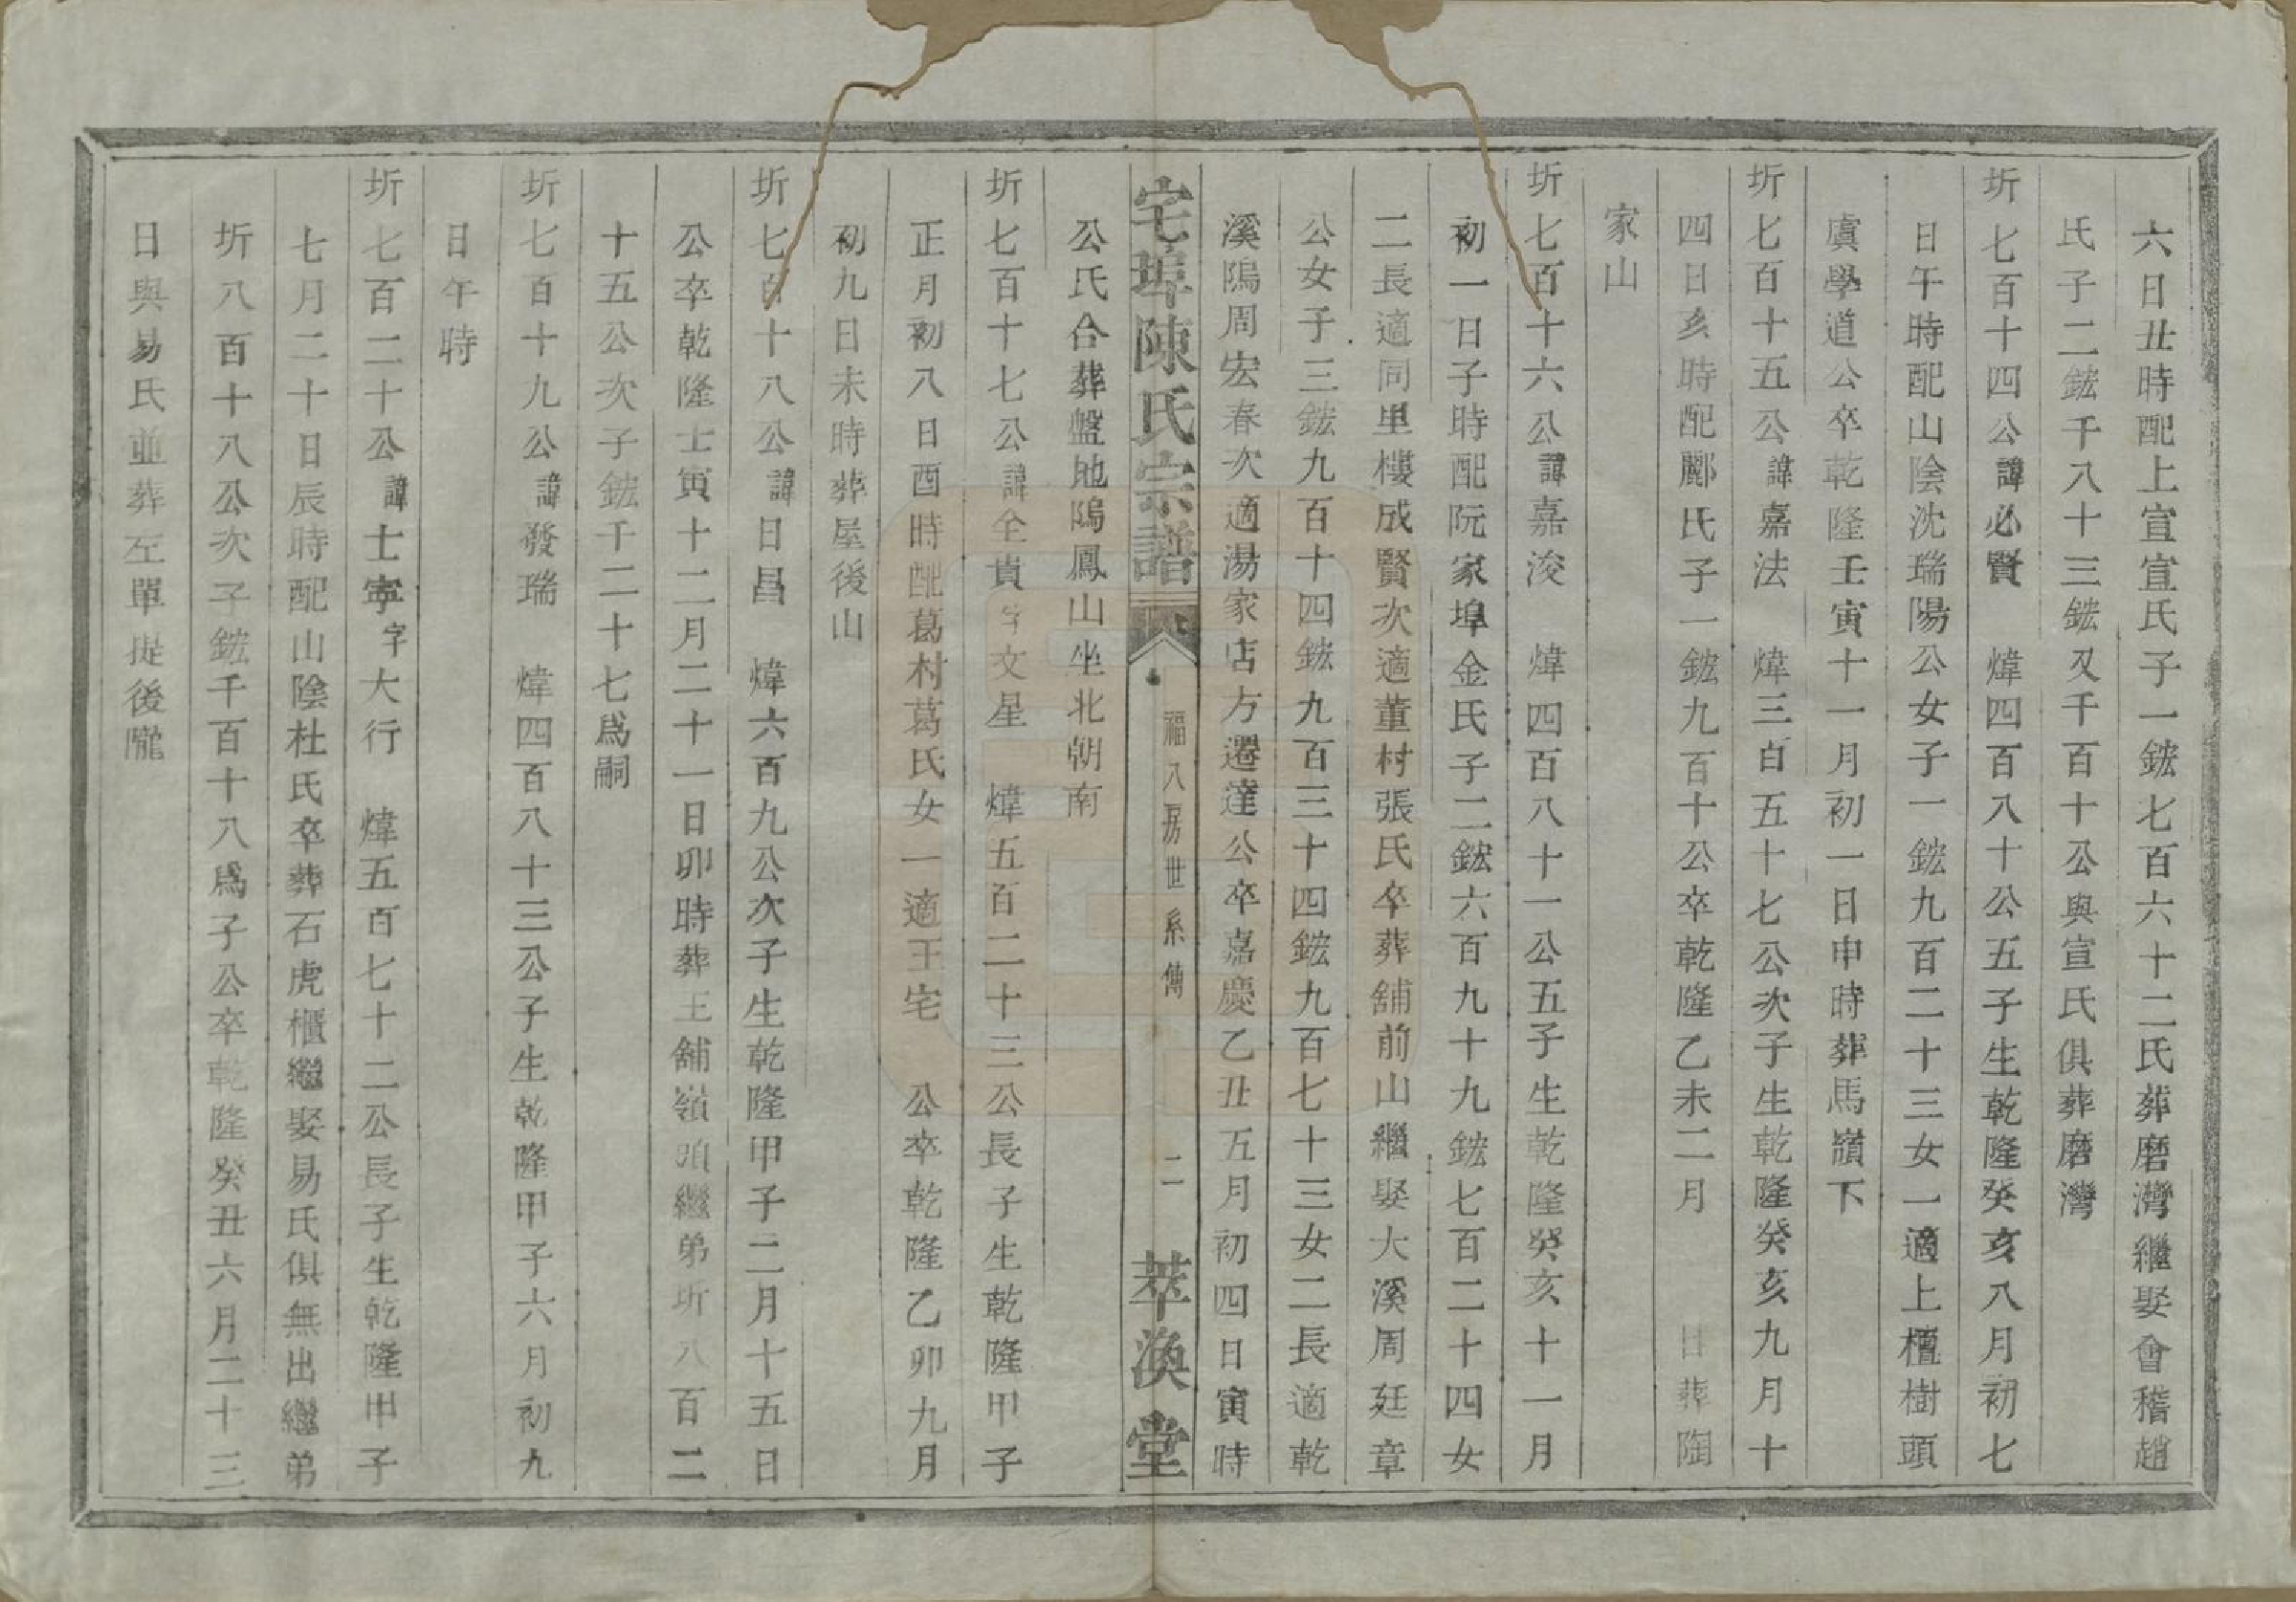 六日丑時配上宣宣氏子一鋐七百六十二氏葬磨灣繼娶會稽趙
氏子二鋐千八十三鋐又千百十公與宣氏俱葬磨灣
圻七百十四公諱必賢 煒四百八十公五子生乾隆癸亥八月初七
日午時配山陰沈瑞陽公女子一鋐九百二十三女一適上櫃樹頭
虞學道公卒乾隆壬寅十一月初一日申時葬馬嶺下
圻七百十五公諱嘉法 煒三百五十七公次子生乾隆癸亥九月十
四日亥時配酈氏子一鋐九百十公卒乾隆乙未二月 日葬陶
家山
圻七百十六公諱嘉浚 煒四百八十一公五子生乾隆癸亥十一月
初一日子時配阮家埠金氏子二鋐六百九十九鋐七百二十四女
二長適同里樓成賢次適董村張氏卒葬舖前山繼娶大溪周廷章
公女子三鋐九百十四鋐九百三十四鋐九百七十三女二長適乾
溪隝周宏春次適湯家店方遷達公卒嘉慶乙丑五月初四日寅時
公氏合葬盤地隝鳳山坐北朝南
宅埠陳氏宗譜 福八房世系傳 二 萃渙堂
圻七百十七公諱全貴字文星 煒五百二十三公長子生乾隆甲子
正月初八日酉時配葛村葛氏女一適王宅 公卒乾隆乙卯九月
初九日未時葬屋後山
圻七百十八公諱日昌 煒六百九公次子生乾隆甲子二月十五日
公卒乾隆士寅十二月二十一日卯時葬王舖嶺頭繼弟圻八百二
十五公次子鋐千二十七爲嗣
圻七百十九公諱發瑞 煒四百八十三公子生乾隆甲子六月初九
日午時
圻七百二十公諱士寧字大行 煒五百七十二公長子生乾隆甲子
七月二十日辰時配山陰杜氏卒葬石虎櫃繼娶易氏俱無出繼弟
圻八百十八公次子鋐千百十八爲子公卒乾隆癸丑六月二十三
日與易氏並葬左單提後隴